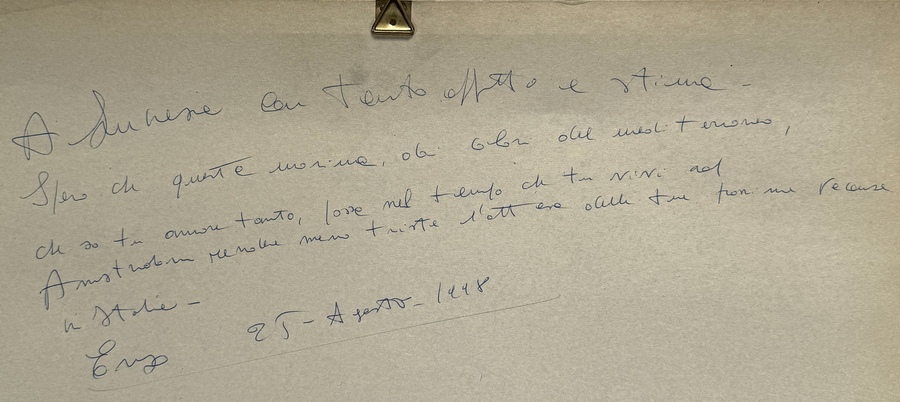 A Lucrezia con tanto affetto e stima -
Spero che questa marina, dai colori del mediterraneo,
che so tu amare tanto, possa nel tempo che tu vivi ad
Amsterdam rendere meno triste l'attesa della tua prossima vacanza
in Italia -
Enzo 25 - Agosto - 1998